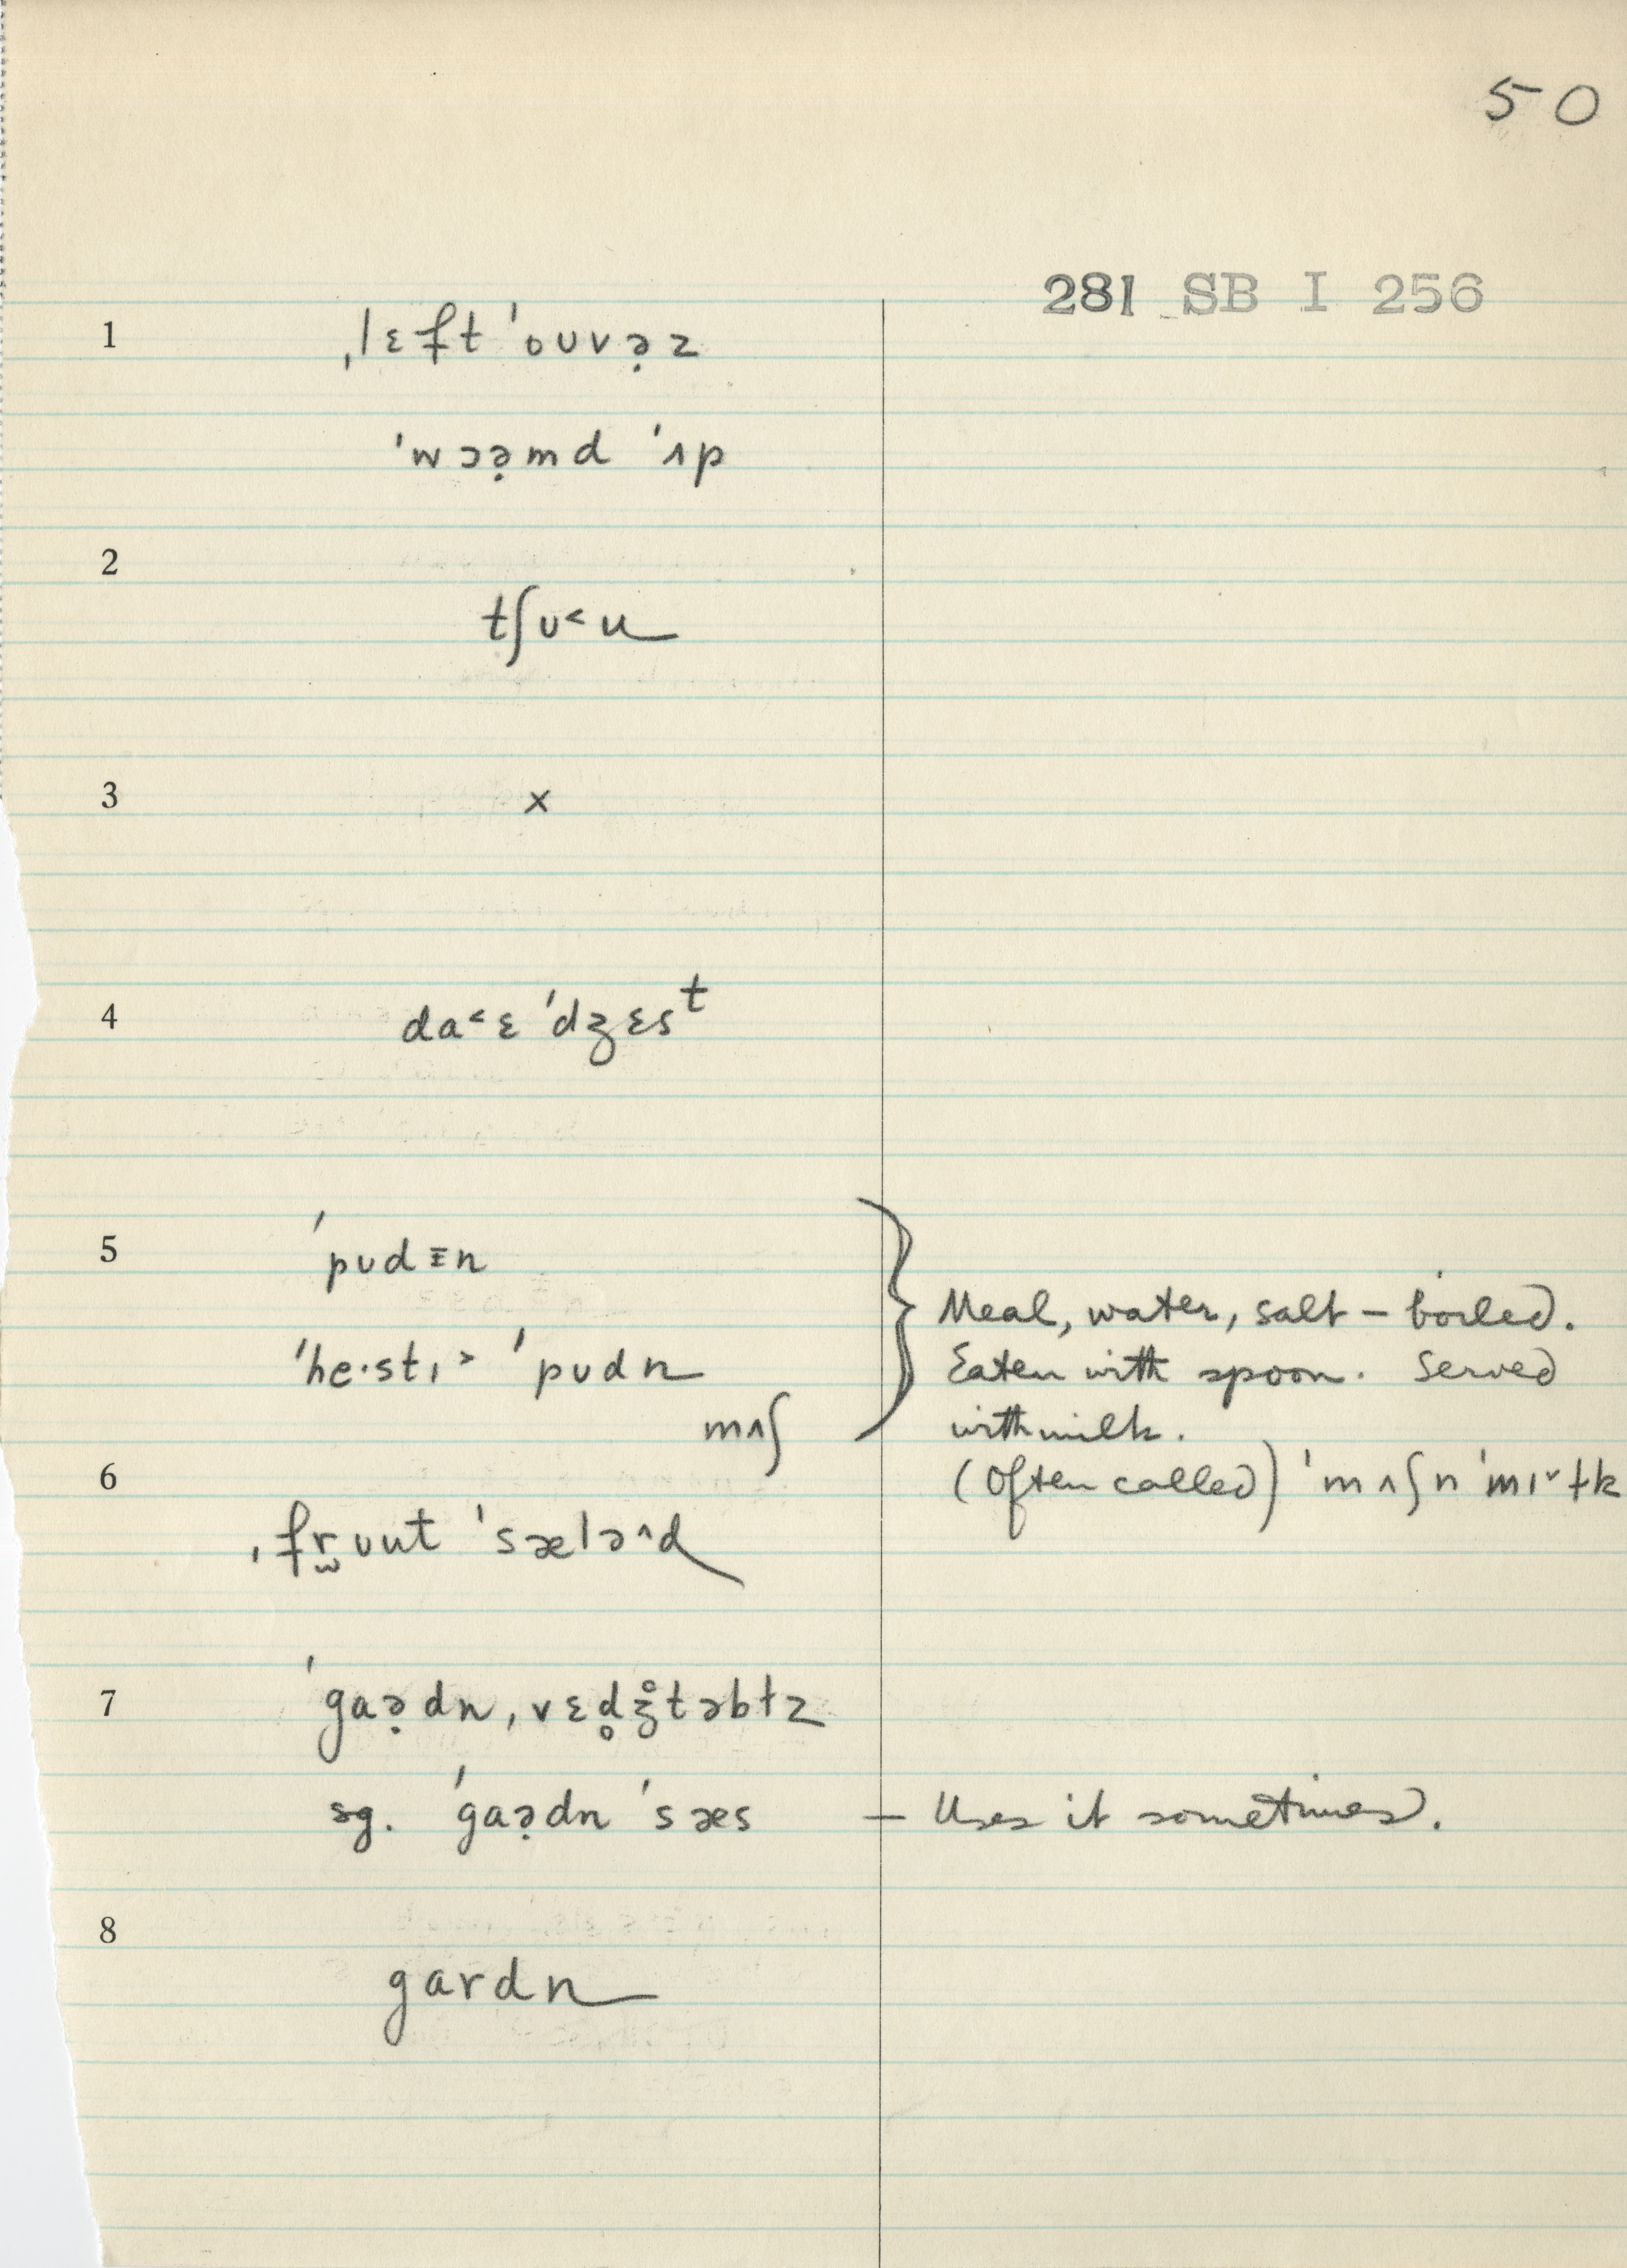 50
281 SB I 256
1 ˌlɛft ˈouvə̣z
ˈwɔə̣md ˈʌp
2
tʃʊ˂u
3 ×
4 da˂ɛ ˈdʒɛsᵗ
5 ˈpʊdɪ̵n
ˈhe·stɪ˃ ˈpʊdn
mʌʃ
Meal, water, salt – boiled.
Eaten with spoon. Served
with milk.
(Often called) ˈmʌʃ n ˈmɪ˅ɫk
6
ˌfr̫ʊut ˈsælə^d
7 ˈgaə̣dn ˌvɛd̥ʒ̊təbɫz
sg. ˈgaə̣dn ˈsæs – Uses it sometimes.
8
gardn